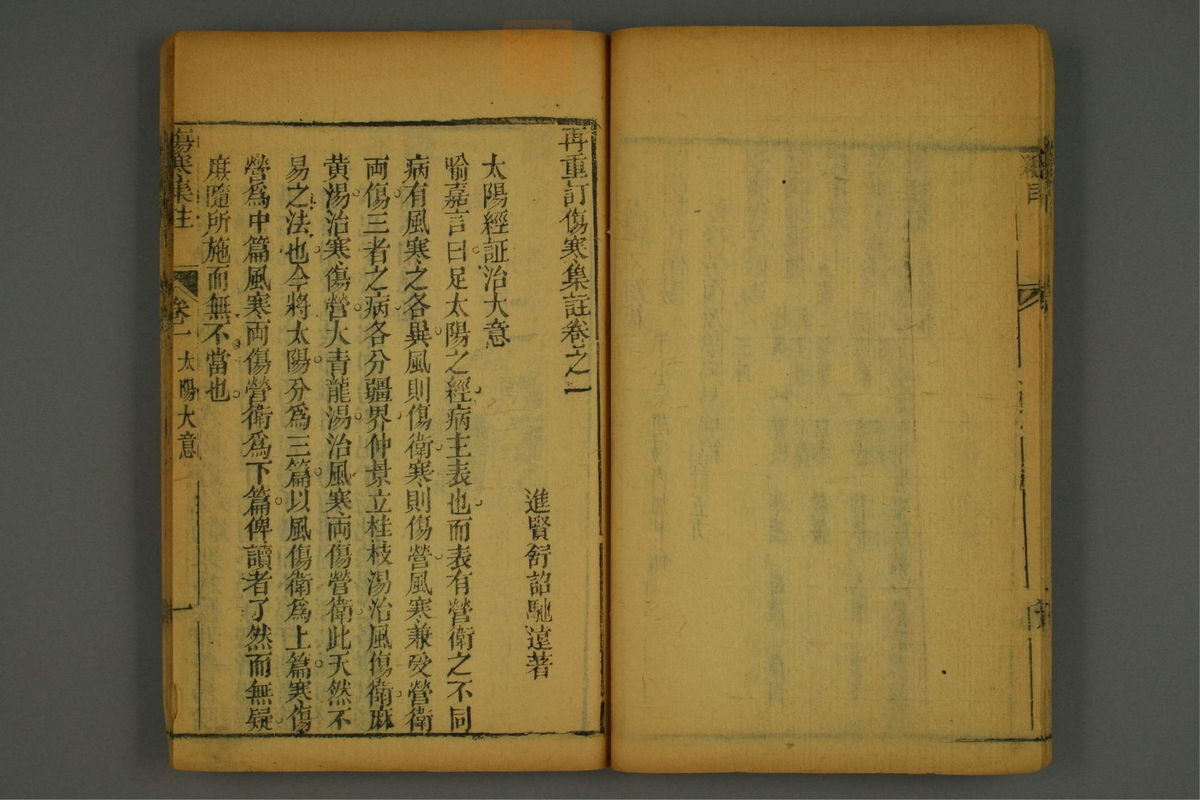 再重訂傷寒集註卷之一
進賢舒詔馳遠著
太陽經証治大意
喻嘉言曰足太陽之經病主表也而表有營衛之不同
病有風寒之各異風則傷衛寒則傷營風寒兼受營衛
両傷三者之病各分疆界仲景立桂枝湯治風傷衛麻
黄湯治寒傷營大青龍湯治風寒両傷營衛此天然不
易之法也今將太陽分爲三篇以風傷衛爲上篇寒傷
營爲中篇風寒両傷營衛爲下篇俾讀者了然而無疑
庻隨所施而無不當也
傷寒集注 卷一 太陽大意 一